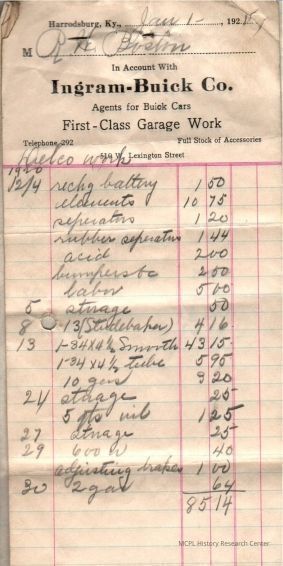 Harrodsburg, Ky., Jan 1- 192
M R H Boston
In Account With
Ingram-Buick Co.
Agents for Buick Cars
First-Class Garage Work
Telephone 292 Full Stock of Accessories
Lexington Street
Delco work
1920
12/4 rechg battery 1 50
elements 10 75
seperators 1 20
rubber seperators 1 44
acid 2 00
2 50
labor 5 00
5 storage 50
8 13 (Studebaker) 4 16
13 1-34X4½ Smooth 43 15
1-34X4½ tube 5 95
10 gas 3 20
24 storage 25
5 qts oil 1 25
27 storage 25
29 600 W 40
adjusting brakes 1 00
30 2 gas 64
85 14
MCPL History Research Center